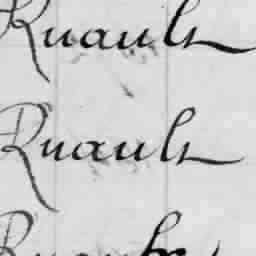 Ruault
Ruault